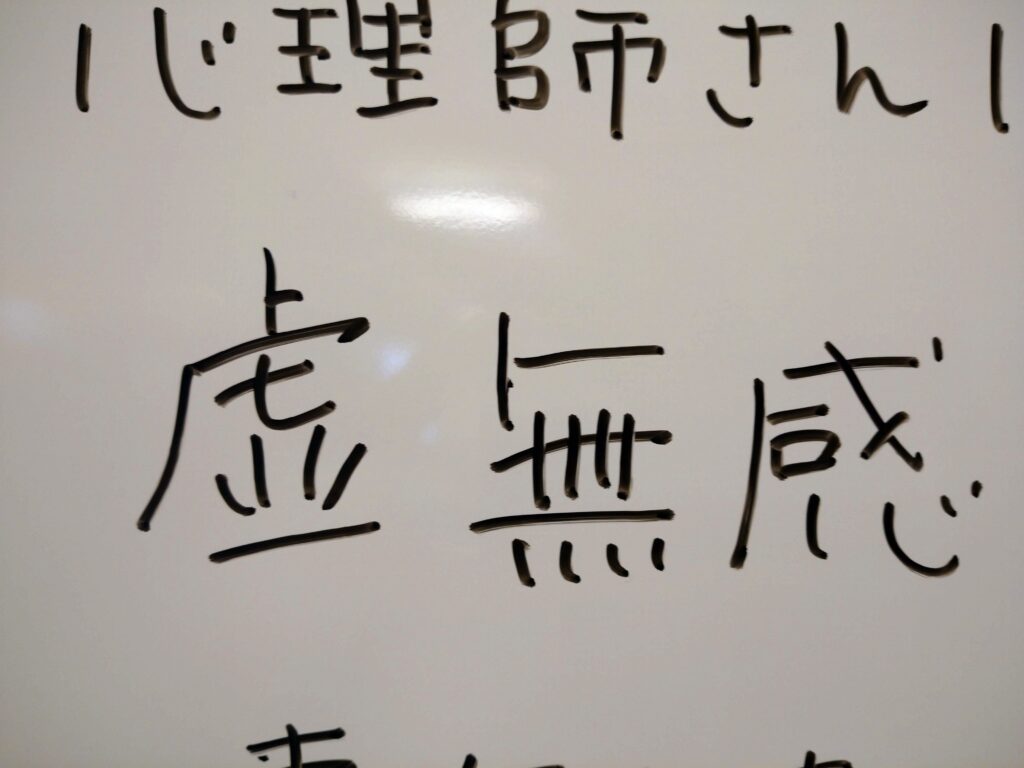 心理師さん
虚無感